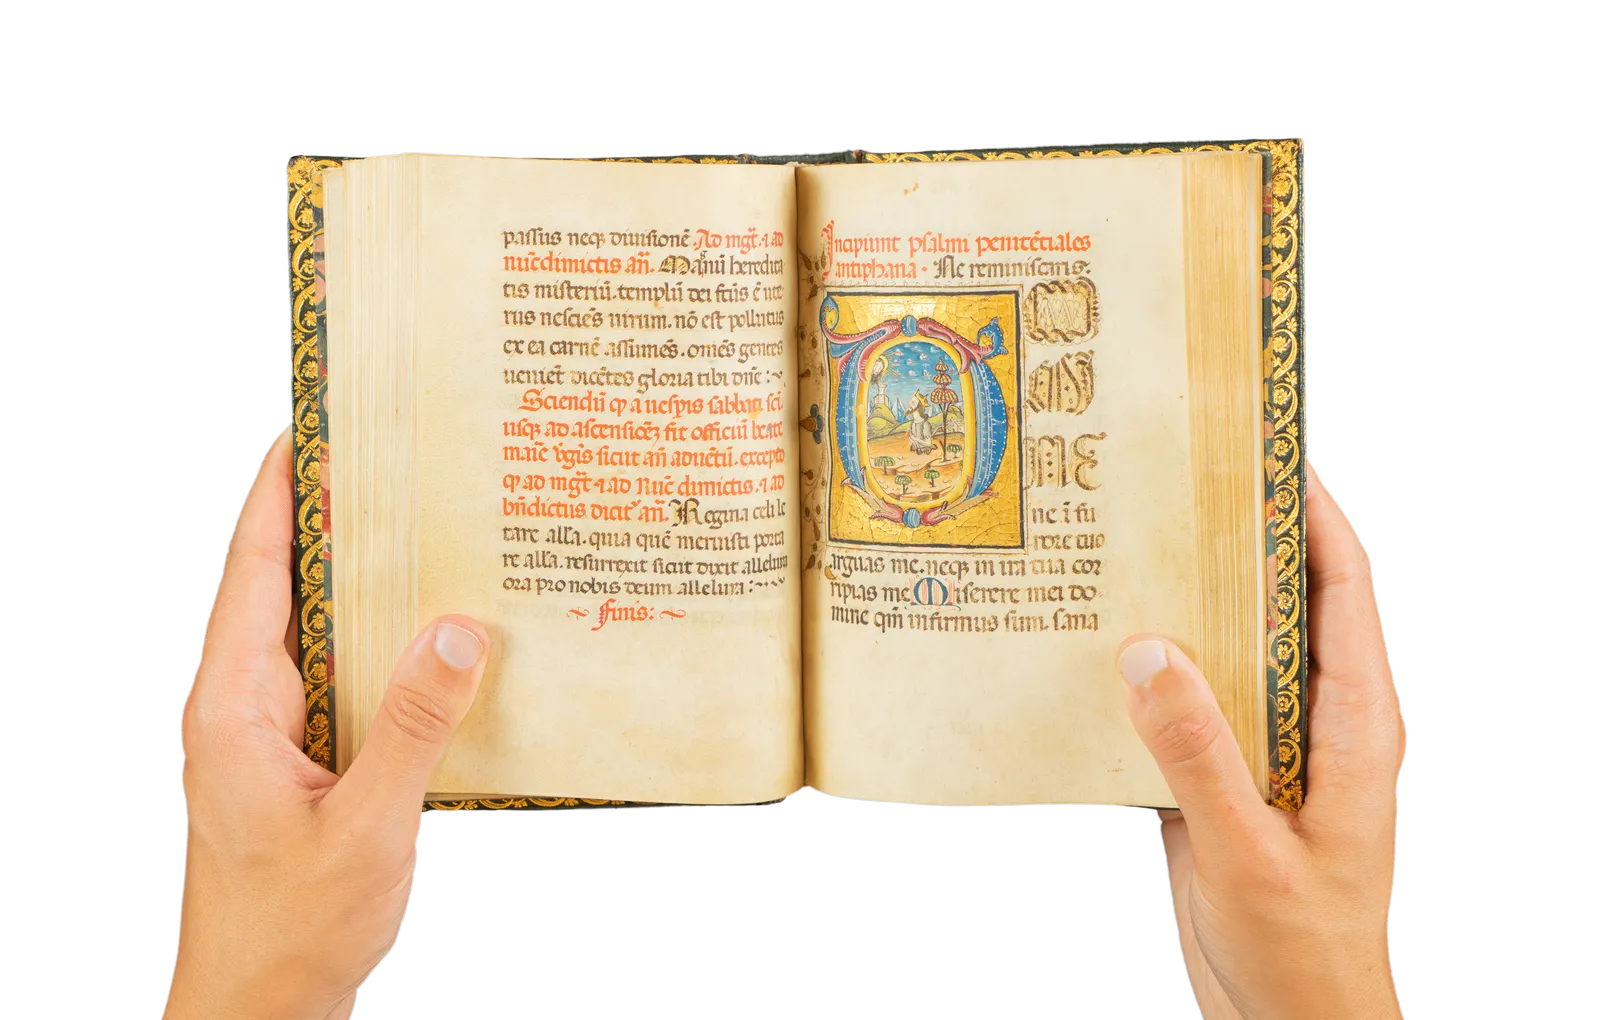 passus neqꝫ diuisionē. Ad mgt̄. ⁊ ad
nūc dimictis an̄. Magnū heredita
tis misteriū. templū dei fc̄us ē ute
rus nesciēs uirum. nō est pollutus
ex ea carnē assumēs. om̄s gentes
ueniēt dicētes gloria tibi dn̄e :~
Sciendū ꝙ a uesp̄is sabbati sc̄i
usqꝫ ad ascensioēꝫ fit officiū beate
marie v̄gis sicut an̄ aduētū. excepto
ꝙ ad mgt̄ ⁊ ad Nūc dimictis. ⁊ ad
bn̄dictus dicit̄ an̄. Regina celi le
tare alla. quia quē meruisti porta
re alla. resurrexit sicut dixit alleluia
ora pro nobis deum alleluia :~
~ Finis: ~
Incipiunt psalmi penitētiales
antiphana · Ne reminiscaris.
DOMINE
ne ī fu
rore tuo
arguas me. neqꝫ in ira tua cor
ripias me. Miserere mei do-
mine qm̄ infirmus sum. sana